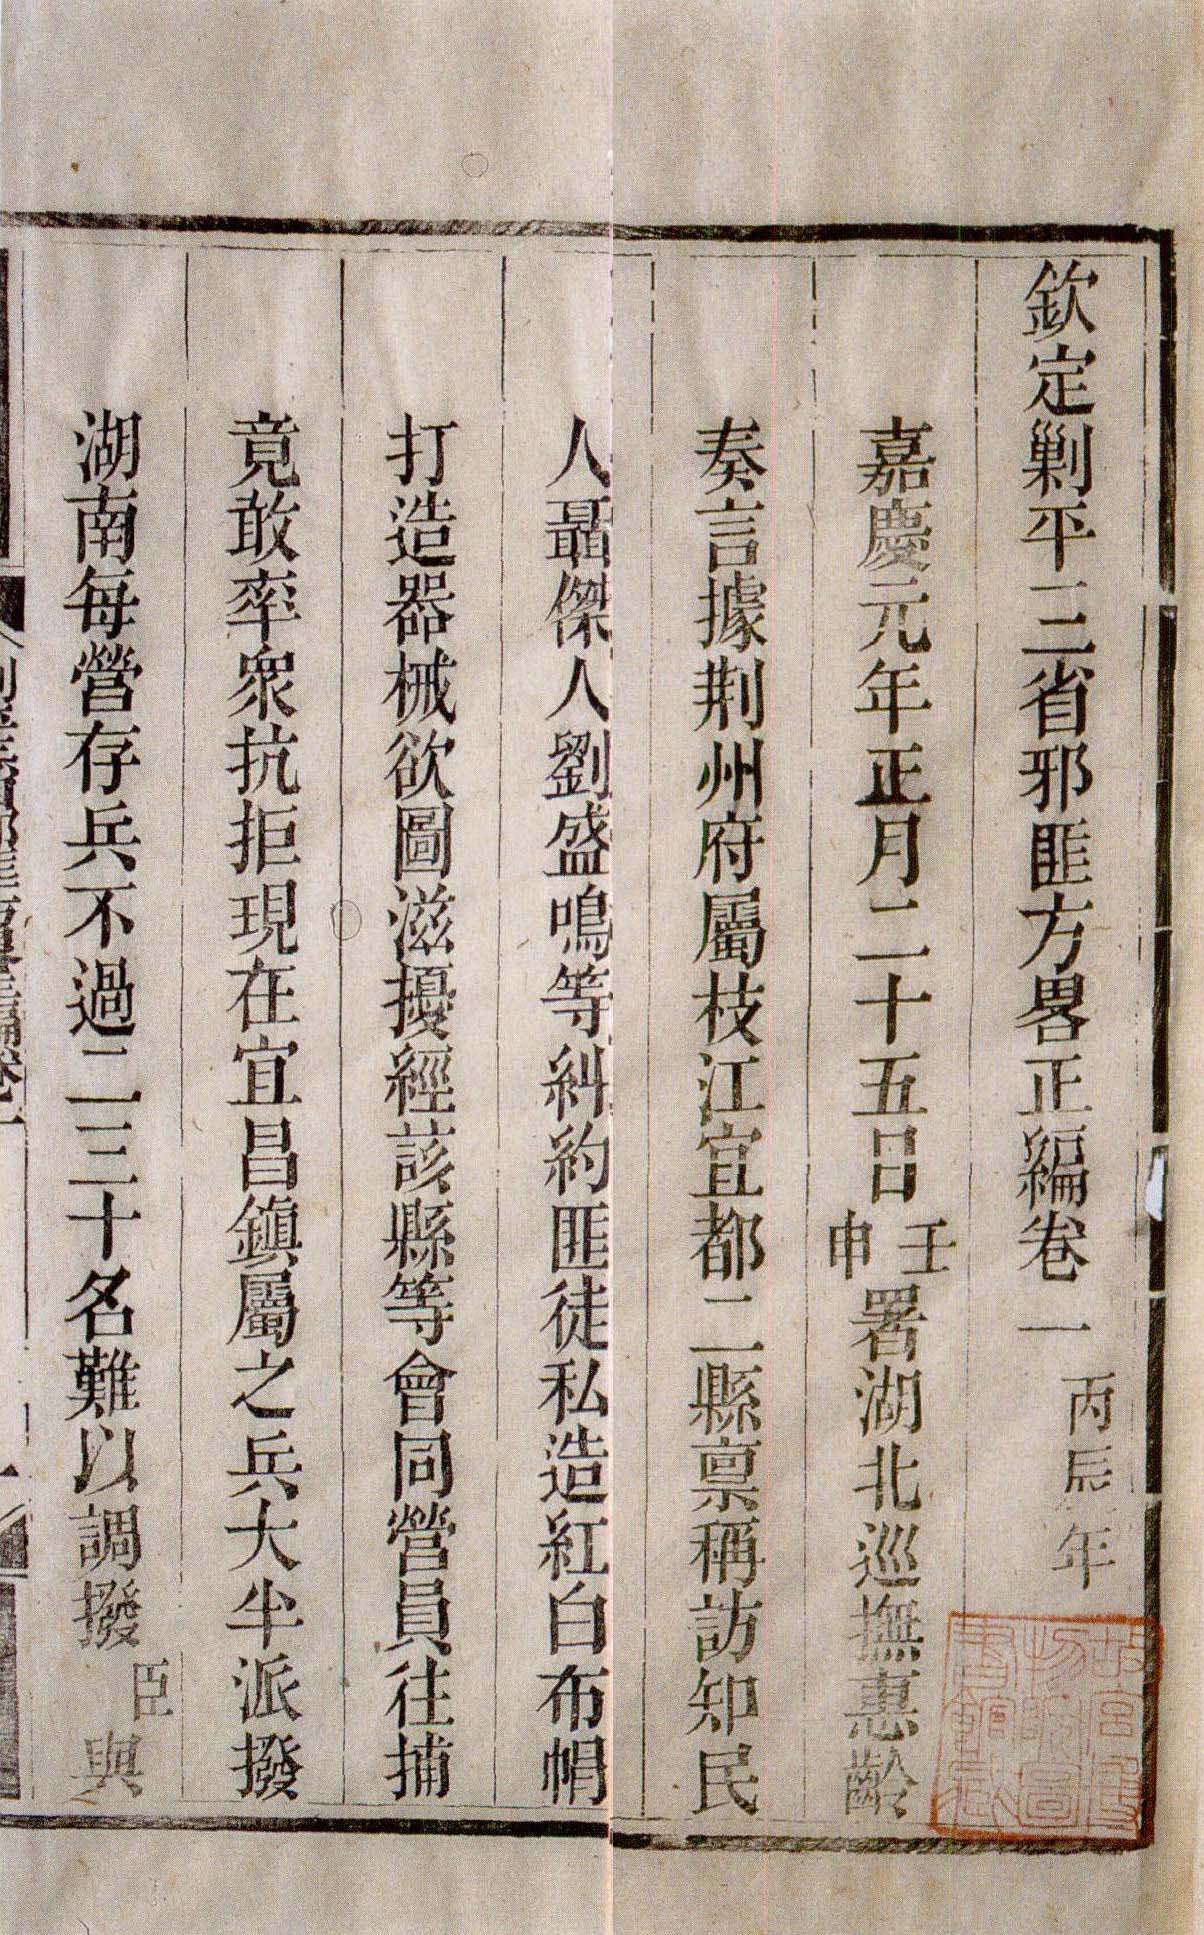 欽定剿平三省邪匪方畧正編卷一 丙辰年
嘉慶元年正月二十五日壬申署湖北巡撫惠齡
奏言據荆州府屬枝江宜都二縣禀稱訪知民
人聶傑人劉盛鳴等糾約匪徒私造紅白布帽
打造器械欲圖滋擾經該縣等會同營員往捕
竟敢率衆抗拒現在宜昌鎮屬之兵大半派撥
湖南每營存兵不過二三十名難以調撥臣與
故宮博物院圖書館藏